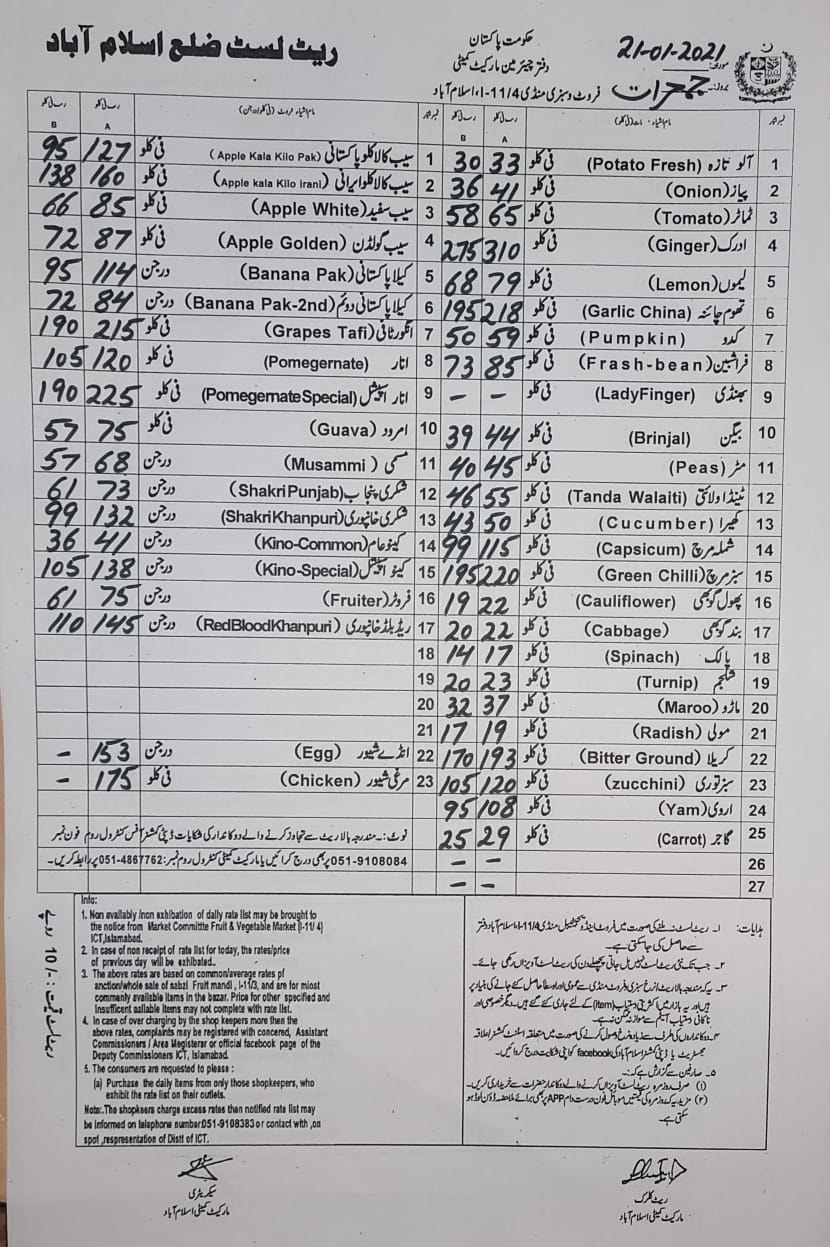 ریٹ لسٹ ضلع اسلام آباد
حکومت پاکستان
دفتر چیئرمین مارکیٹ کمیٹی
فروٹ و سبزی منڈی I-11/4، اسلام آباد
مورخہ: 21-01-2021
بروز: جمعرات
نمبر شمار نام اشیاء A B
1 آلو تازہ (Potato Fresh) فی کلو 33 30
2 پیاز (Onion) فی کلو 41 36
3 ٹماٹر (Tomato) فی کلو 65 58
4 ادرک (Ginger) فی کلو 310 275
5 لیموں (Lemon) فی کلو 79 68
6 تھوم چائنہ (Garlic China) فی کلو 218 195
7 کدو (Pumpkin) فی کلو 59 50
8 فراشبین (Frash-bean) فی کلو 85 73
9 بھنڈی (LadyFinger) فی کلو - -
10 بینگن (Brinjal) فی کلو 44 39
11 مٹر (Peas) فی کلو 45 40
12 ٹینڈا ولائتی (Tanda Walaiti) فی کلو 55 46
13 کھیرا (Cucumber) فی کلو 50 43
14 شملہ مرچ (Capsicum) فی کلو 115 99
15 سبز مرچ (Green Chilli) فی کلو 220 195
16 پھول گوبھی (Cauliflower) فی کلو 22 19
17 بند گوبھی (Cabbage) فی کلو 22 20
18 پالک (Spinach) فی کلو 17 14
19 شلجم (Turnip) فی کلو 23 20
20 ماڑو (Maroo) فی کلو 37 32
21 مولی (Radish) فی کلو 19 17
22 کریلا (Bitter Ground) فی کلو 193 170
23 سبز توری (zucchini) فی کلو 120 105
24 اروی (Yam) فی کلو 108 95
25 گاجر (Carrot) فی کلو 29 25
26 - -
27 - -
نمبر شمار نام اشیاء فروٹ A B
1 سیب کالا کلو پاکستانی (Apple Kala Kilo Pak) فی کلو 127 95
2 سیب کالا کلو ایرانی (Apple kala Kilo Irani) فی کلو 160 138
3 سیب سفید (Apple White) فی کلو 85 66
4 سیب گولڈن (Apple Golden) فی کلو 87 72
5 کیلا پاکستانی (Banana Pak) درجن 114 95
6 کیلا پاکستانی دوئم (Banana Pak-2nd) درجن 84 72
7 انگور ٹافی (Grapes Tafi) فی کلو 215 190
8 انار (Pomegernate) فی کلو 120 105
9 انار اسپیشل (Pomegernate Special) فی کلو 225 190
10 امرود (Guava) فی کلو 75 57
11 مسمی (Musammi) درجن 68 57
12 شکری پنجاب (Shakri Punjab) درجن 73 61
13 شکری خانپوری (Shakri Khanpuri) درجن 132 99
14 کینو عام (Kino-Common) درجن 41 36
15 کینو اسپیشل (Kino-Special) درجن 138 105
16 فروٹر (Fruiter) درجن 75 61
17 ریڈ بلڈ خانپوری (RedBloodKhanpuri) درجن 145 110
18
19
20
21
22 انڈے شیور (Egg) درجن 153 -
23 مرغی شیور (Chicken) فی کلو 175 -
نوٹ:۔ مندرجہ بالا ریٹ سے تجاوز کرنے والے دوکاندار کی شکایات ڈپٹی کمشنر آفس کنٹرول روم فون نمبر
051-9108084 پر بھی درج کرائیں یا مارکیٹ کمیٹی کنٹرول روم نمبر: 051-4867762 پر رابطہ کریں۔
ریٹ لسٹ قیمت: -/10 روپے
Info:
1. Non availably /non exhibation of daily rate list may be brought to
the notice from Market Committte Fruit & Vegetable Market (I-11/4)
ICT,Islamabad.
2. In case of non receipt of rate list for today, the rates/price
of previous day will be exhibated..
3. The above rates are based on common/average rates pf
anction/whole sale of sabzi Fruit mandi, I-11/3, and are for miost
commenly available items in the bazar. Price for other specified and
Insufficent aailable items may not complete with rate list.
4. In case of over charging by the shop keepers more then the
above rates, complaints may be registered with concered, Assistant
Commissioners / Area Megisterar or official facebook page of the
Deputy Commissioners ICT, Islamabad.
5. The consumers are requested to please :
(a) Purchase the daily items from only those shopkeepers, who
exhibit the rate list on their outlets.
Note:.The shopkears charge excess rates then notified rate list may
be informed on telephone number051-9108383 or contact with ,on
spot ,respresentation of Distt of ICT.
ہدایات: ۱۔ ریٹ لسٹ نہ ملنے کی صورت میں فروٹ اینڈ ویجیٹیبل منڈی I-11/4 اسلام آباد دفتر
سے حاصل کی جا سکتی ہے۔
۲۔ جب تک نئی ریٹ لسٹ نہیں مل جاتی پچھلے دن کی ریٹ لسٹ آویزاں رکھی جائے۔
۵۔ صارفین سے گزارش ہے کہ:۔
سیکریٹری
مارکیٹ کمیٹی اسلام آباد
ریٹ کلرک
مارکیٹ کمیٹی اسلام آباد